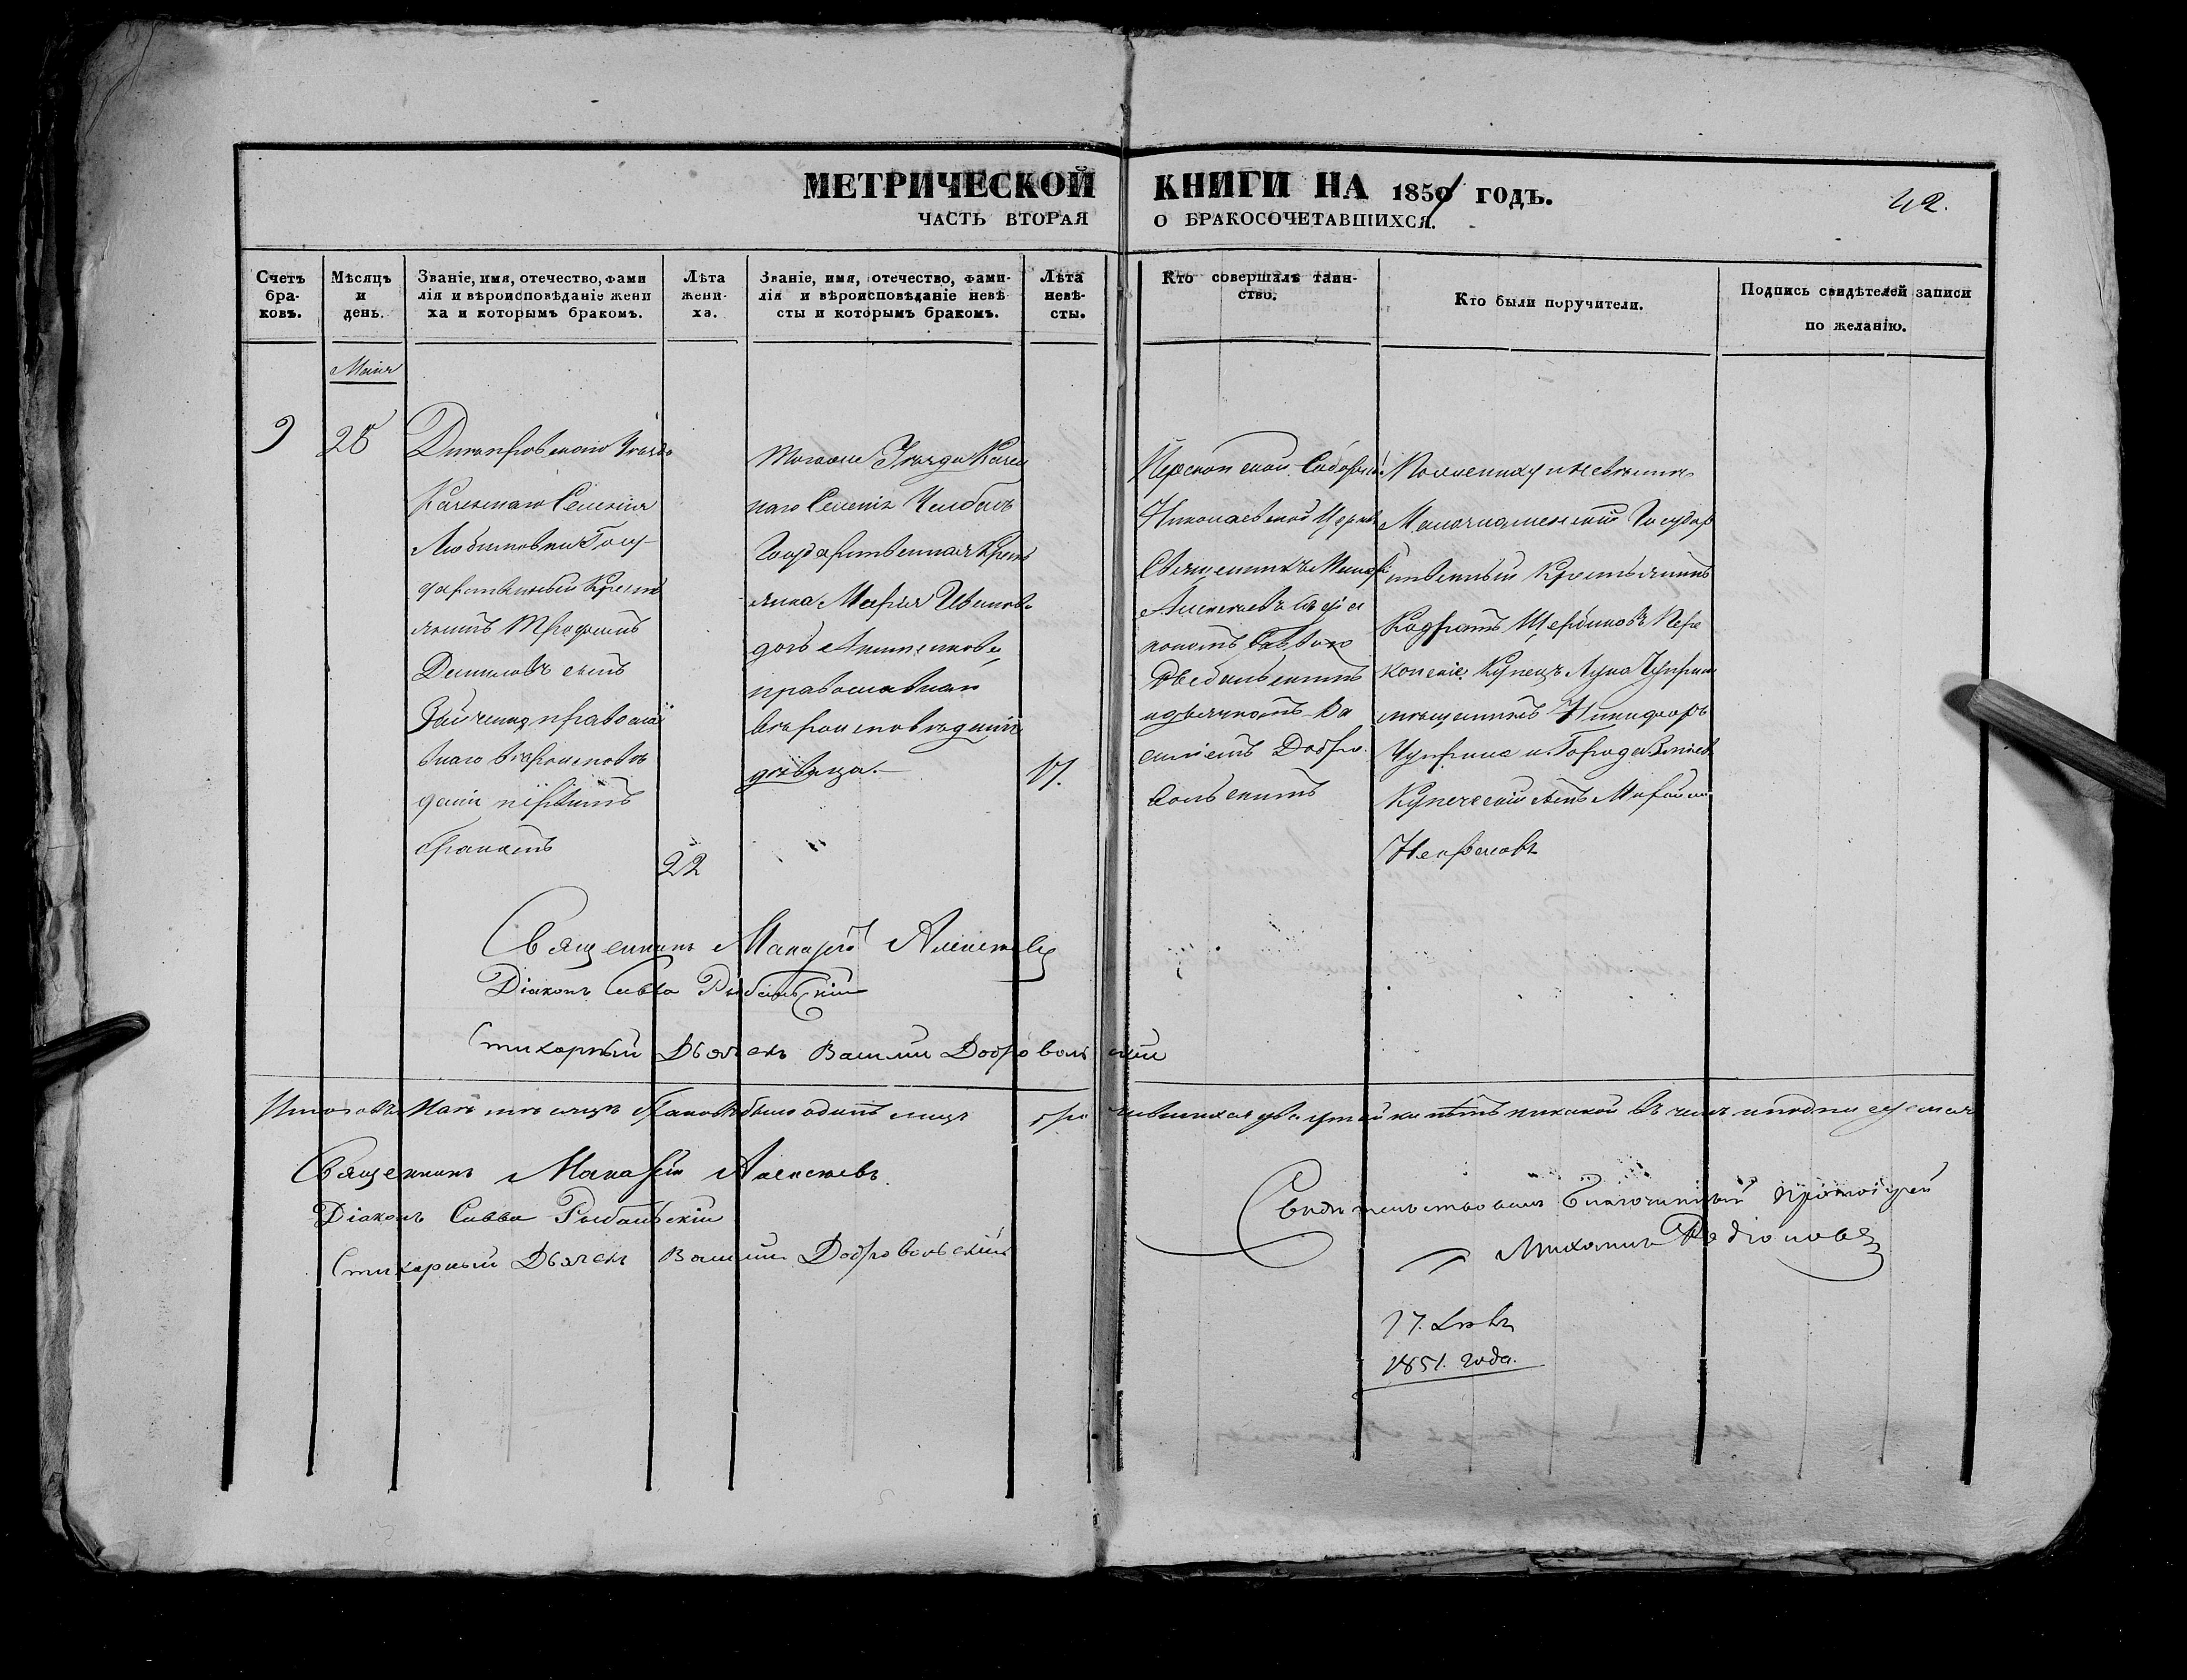 МЕТРИЧЕСКОЙ КНИГИ НА 1851 ГОДЪ.
42.
ЧАСТЬ ВТОРАЯ О БРАКОСОЧЕТАВШИХСЯ.
Счетъ
бра-
ковъ.
Мѣсяцъ
и
день.
Званіе, имя, отечество, фами
лія и вѣроисповѣданіе жени
ха и которымъ бракомъ.
Лѣта
жени-
ха.
Званіе, имя, отечество, фами-
лія и вѣроисповѣданіе невѣ
сты и которымъ бракомъ.
Лѣта
невѣ-
сты.
Кто совершалъ таин-
ство.
Кто были поручители.
Подпись свидѣтелей записи
по желанію.
Маія
9
Днѣпровскаго Уѣзда
Казеннаго Селенія
Любимовки Госу-
дарственный Кресть
янинъ Трофимъ
Даниловъ сынъ
православ
наго вѣроисповѣ
данія первымъ
бракомъ
22
Тогоже Уѣзда Казен
наго Селенія Чалбасъ
Государственная Кресть
янка Марія Иванова
дочь
православнаго
вѣроисповѣданія
дѣвица.
17.
Перекопской Соборной
Николаевской Церкви
Священникъ Макарій
Алексѣевъ съ діа
кономъ Саввою
Рыбальскимъ
и дьячкомъ Ва
силіемъ Добро
вольскимъ
По женихѣ и невѣстѣ
Малокаменскій Государ
ственный Крестьянинъ
Кодратъ Щербиновъ Пере
копскіе Купецъ Лука Чуприна
мѣщанинъ Никифоръ
Чуприна и Города
Купеческій сынъ
Некрасовъ
Священникъ Макарій Алексѣевъ
Діаконъ Савва Рыбальскій
Стихарный Дьячекъ Василий Добровольский
Итого въ Маѣ мѣсяцѣ браковъ было одинъ лицъ бра
чившихся два почистки нѣтъ никакой въ чемъ и подписуемся
Священникъ Макарій Алексѣевъ.
Діаконъ Савва Рыбальскій
Стихарный Дьячекъ Василий Добровольскій
Свидѣтельствовалъ Благочинный протоіерей
Михаилъ Родіоновъ
17.
1851. года.